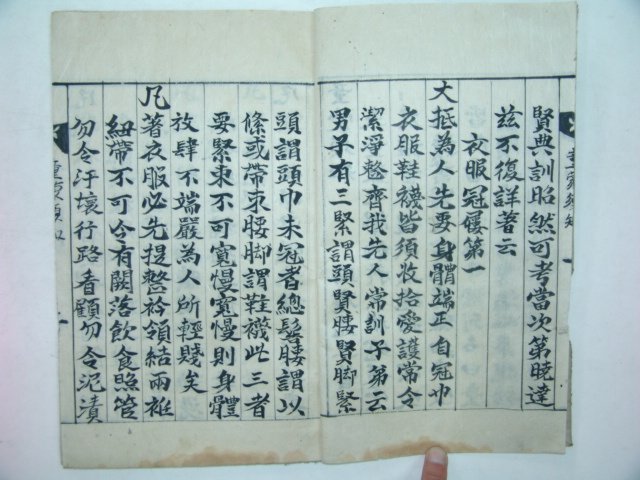 賢典訓昭然可考當次第曉達
玆不復詳著云
衣服冠屨第一
大抵為人先要身體端正自冠巾
衣服鞋襪皆須收拾愛護常令
潔淨整齊我先人常訓子第云
男子有三緊謂頭賢腰賢脚緊
頭謂頭巾未冠者總髻腰謂以
條或帶束腰脚謂鞋襪此三者
要緊束不可寬慢寬慢則身體
放肆不端嚴為人所輕賤矣
凡著衣服必先提整衿領結兩袵
紐帶不可令有闕落飲食照管
勿令汙壞行路看顧勿令泥漬
童蒙須知